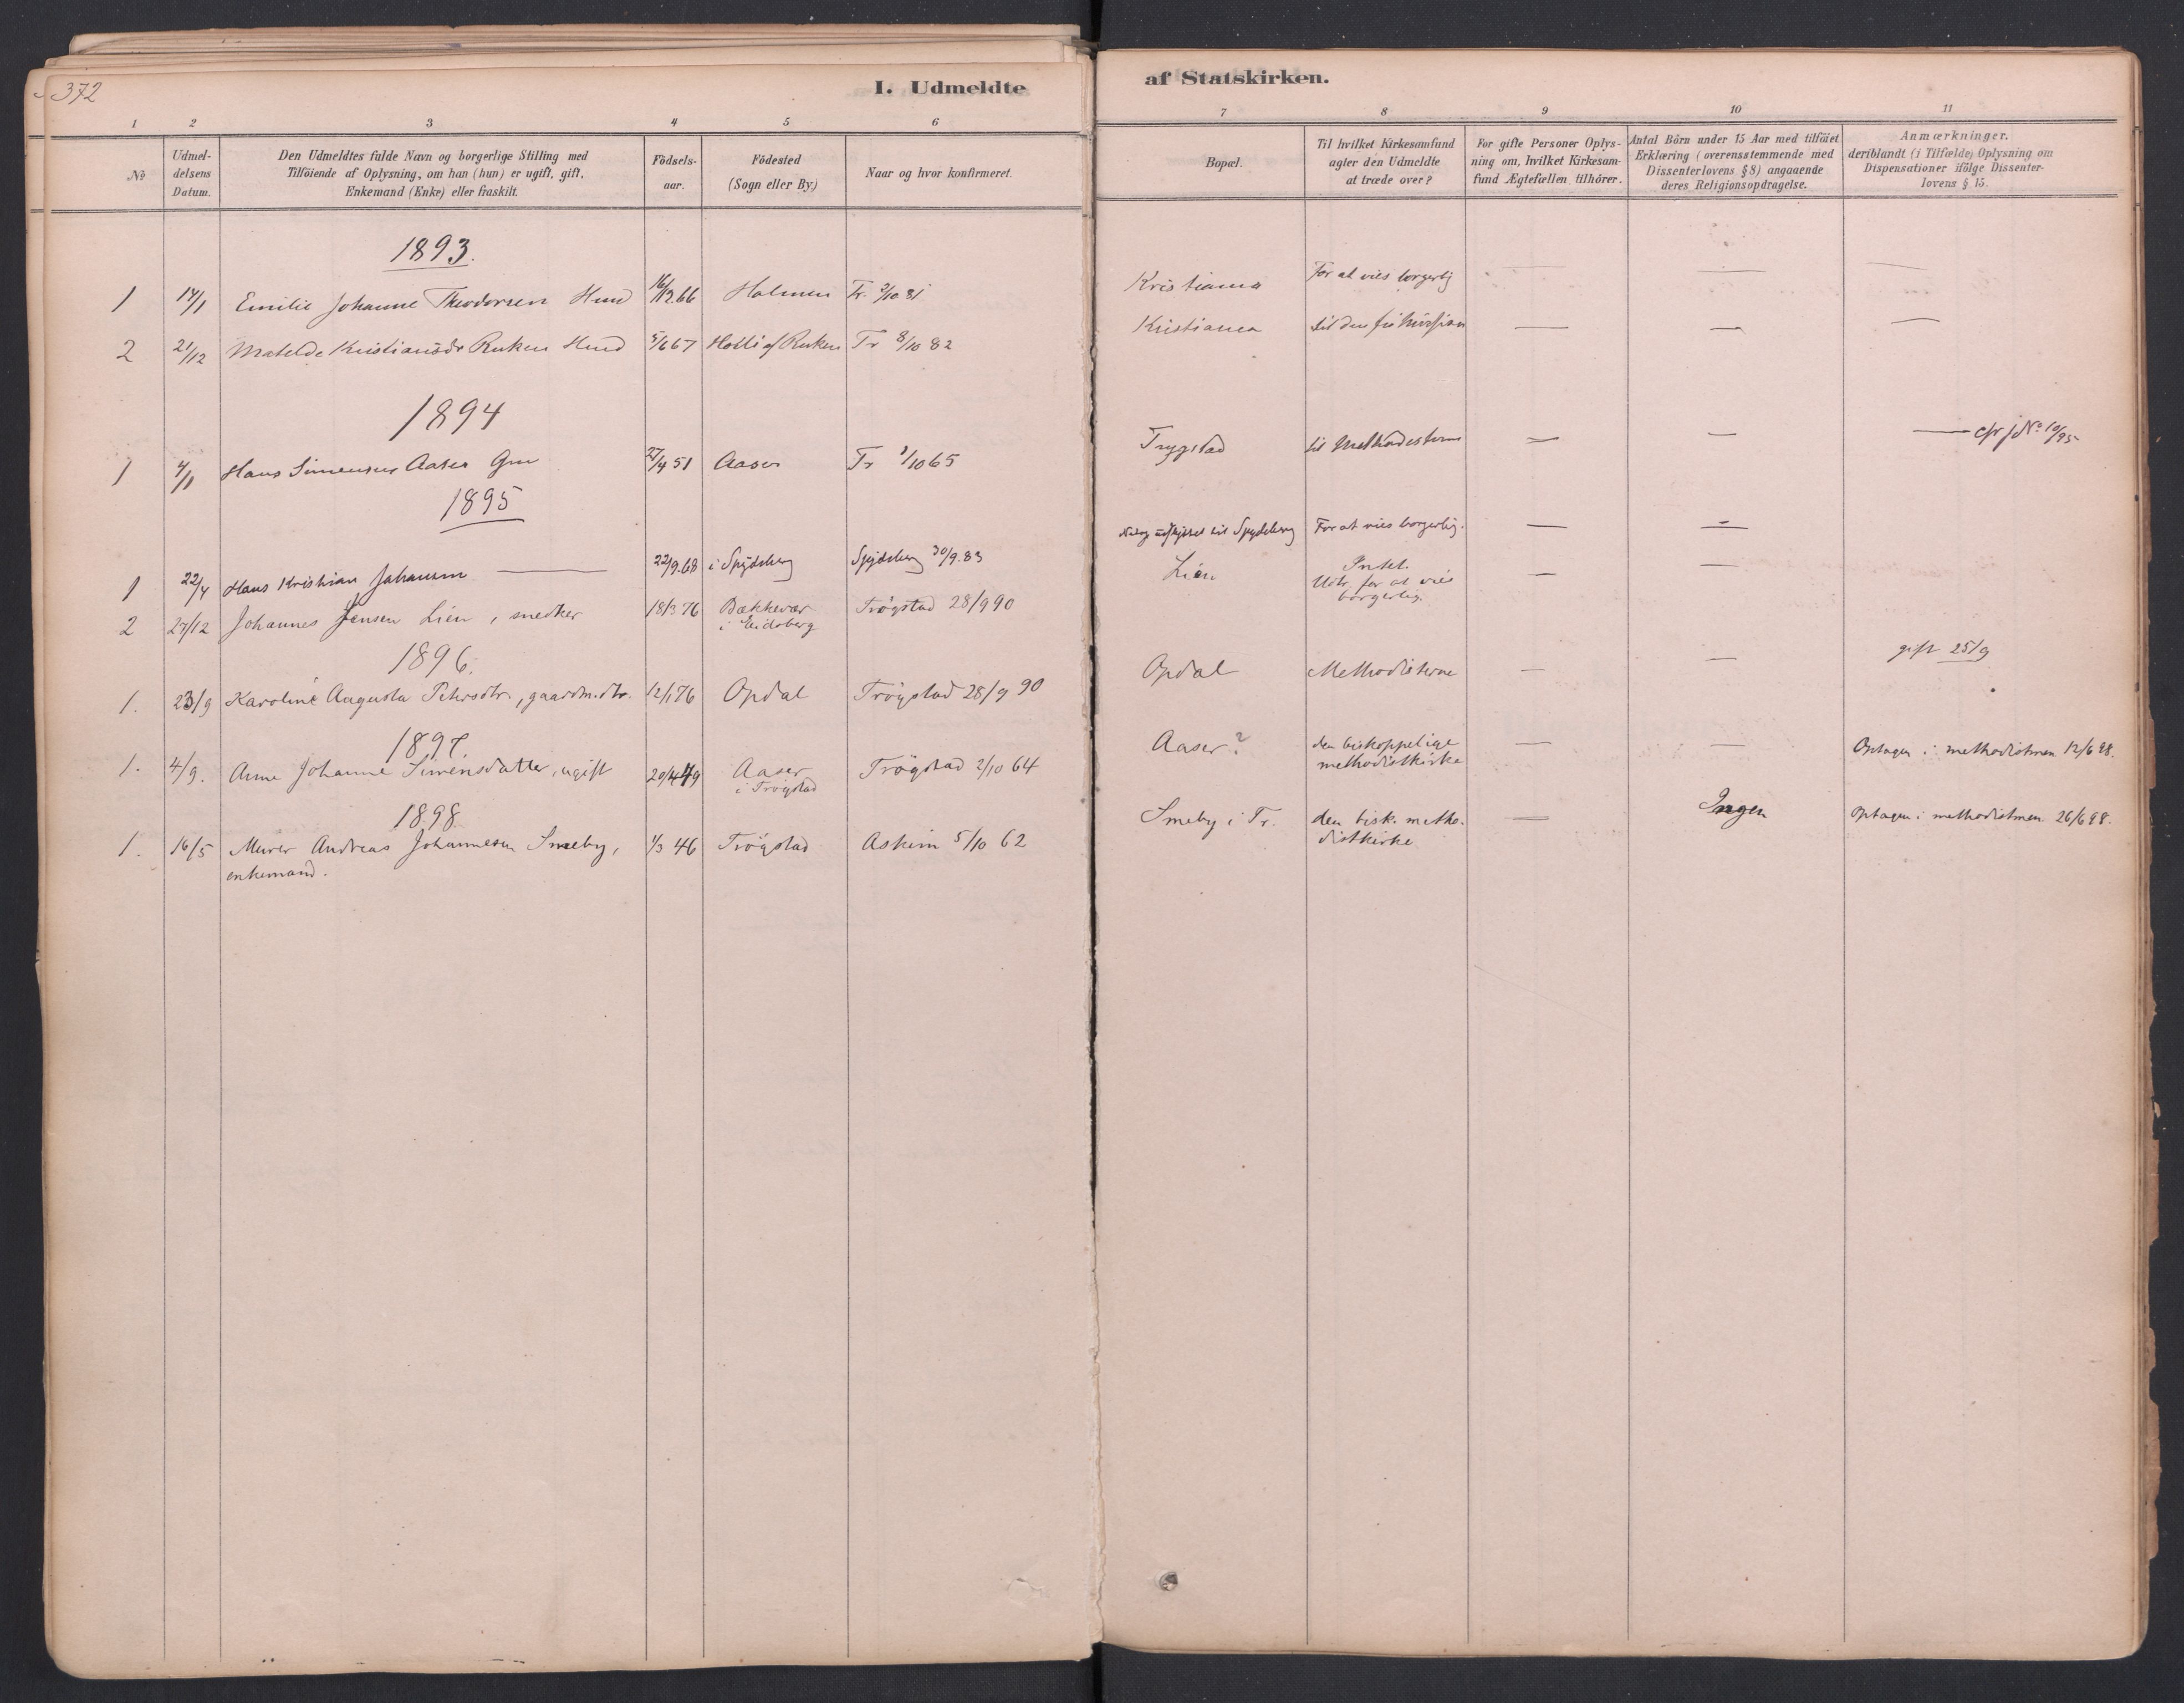 372
I. Udmeldte af Statskirken.
1 2 3 4 5 6 7 8 9 10 11
No
Udmel-
delsens
Datum.
Den Udmeldtes fulde Navn og borgerlige Stilling med
Tilföiende af Oplysning, om han (hun) er ugift, gift,
Enkemand (Enke) eller fraskilt.
Födsels-
aar.
Födested
(Sogn eller By)
Naar og hvor konfirmeret.
Bopæl.
Til hvilket Kirkesamfund
agter den Udmeldte
at træde over?
For gifte Personer Oplys-
ning om, hvilket Kirkesam-
fund Ægtefællen tilhörer.
Antal Börn under 15 Aar med tilföiet
Erklæring (overensstemmende med
Dissenterlovens §8) angaaende
deres Religionsopdragelse.
Anmærkninger,
deriblandt (i Tilfælde) Oplysning om
Dispensationer ifölge Dissenter-
lovens § 15.
1893.
1 14/1 Emilie Johanne Theodorsen 16/12 66 Holmen Tr. 2/10 81 Kristiania For at vies borgerlig — — —
2 21/12 Matelde Kristiansdr Ruken 5/6 67 Ruken Tr 8/10 82 Kristiania til den fri — — —
1894
1 4/1 Hans Simensen Aaser Gm 27/4 51 Aaser Tr 1/10 65 Trygstad til Methodisterne — — — cfr No 10/95
1895
1 22/4 Hans Kristian Johansen — 22/9.68 i Spydeberg Spydeberg 30/9.83 til Spydeberg For at vies borgerlig. — —
2 27/12 Johannes Jensen Lien, snedker 18/3 76 Bækkevar
i Eidsberg
Trögstad 28/9 90 Lien
Udtr. for at vies
borgerlig. — —
1896.
1. 23/9 Karoline Augusta Petersdtr., gaardm.dtr. 12/1 76 Opdal Trögstad 28/9 90 Opdal Methodisterne — — gift 25/9
1897.
1. 4/9. Anne Johanne Simensdatter, ugift 20/4 49 Aaser
i Trögstad
Trögstad 2/10 64 Aaser? den biskoppelige
methodistkirke — — Optagen i methodistmen. 12/6 98.
1898.
1. 16/5 Murer Andreas Johannesen Smeby,
enkemand.
1/3 46 Trögstad Askim 5/10 62 Smeby i Tr. den bisk. metho-
distkirke — Ingen Optagen i methodistmen. 26/6 98.